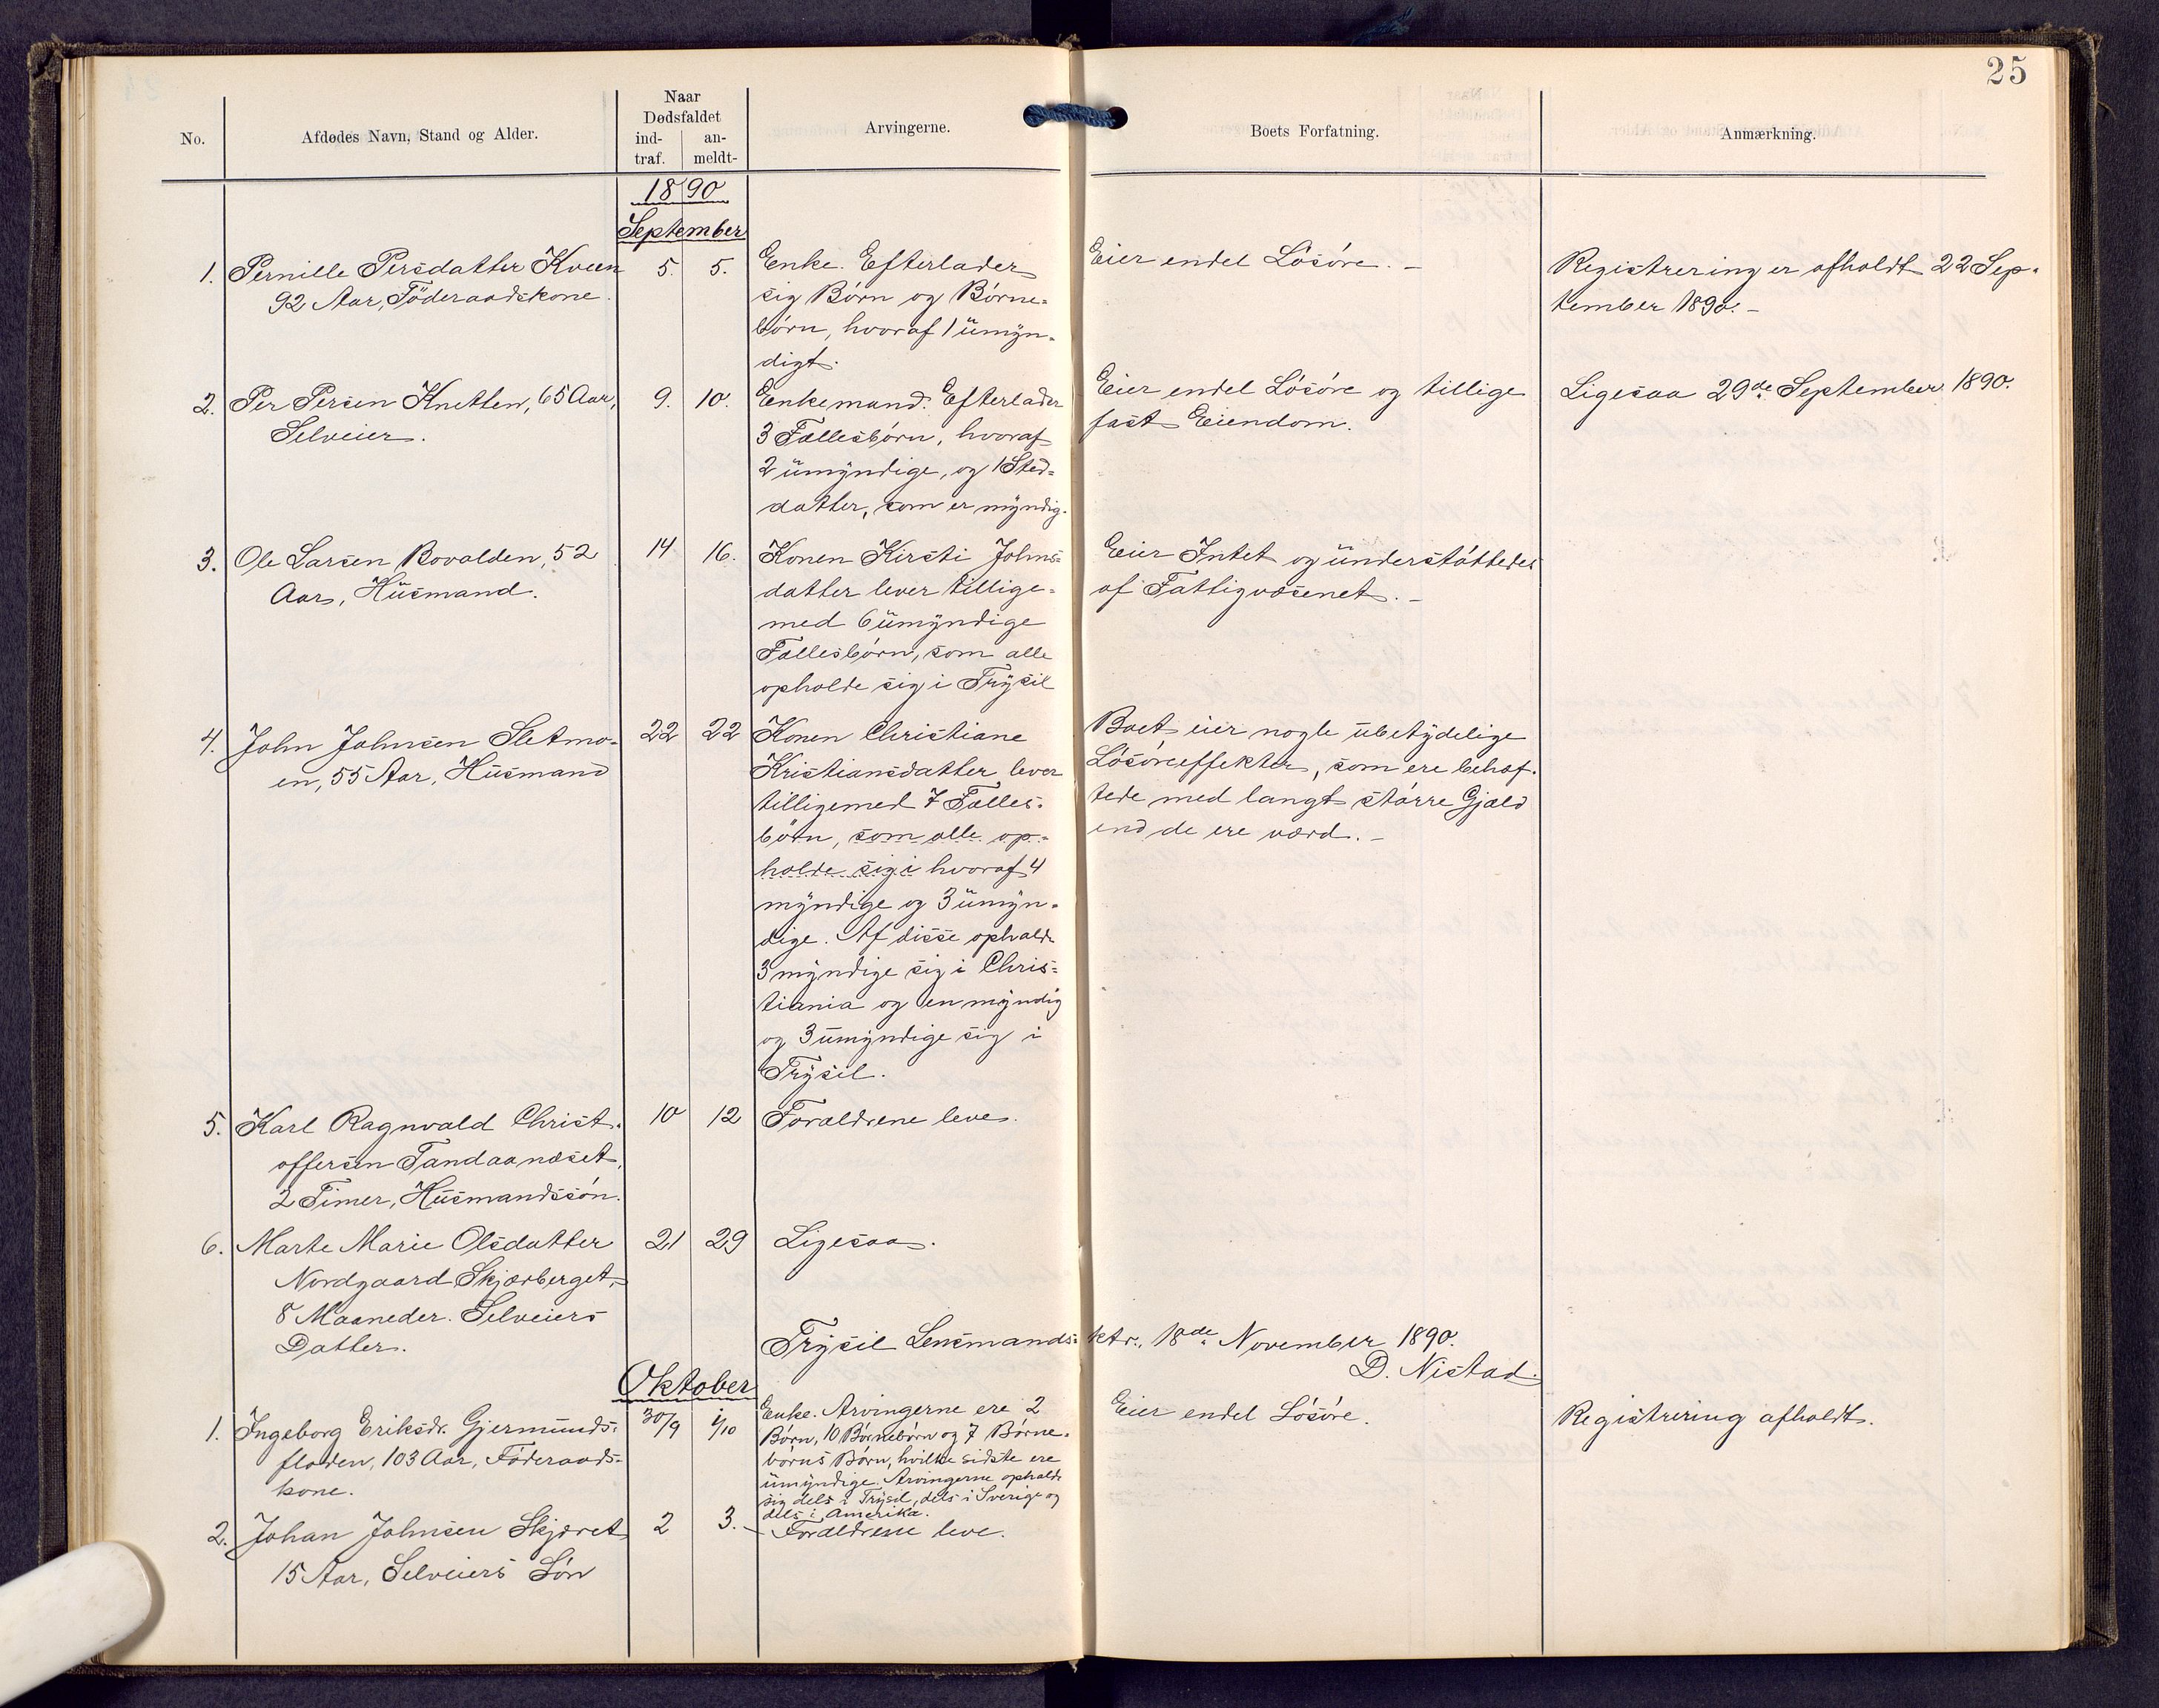 25
No.
Afdødes Navn, Stand og Alder.
Naar
Dødsfaldet
ind-
traf.
an-
meldt-
Arvingerne.
Boets Forfatning.
Anmærkning.
1890
September
1. Pernille Persdatter Kveen
92 Aar, Föderaadskone.
5. 5.
Enke. Efterlader
sig Børn og Børne-
børn, hvoraf 1 umyn-
digt.
Eier endel Løsøre. –
Registrering er afholdt 22 Sep-
tember 1890. –
2. Per Persen Knetten, 65 Aar,
Selveier.
9. 10.
Enkemand. Efterlader
3 Fællesbørn, hvoraf
2 umyndige, og 1 Sted-
datter, som er myndig.
Eier endel Løsøre og tillige
fast Eiendom.
Ligesaa 29de September 1890.
3. Ole Larsen Rovolden, 52
Aar, Husmand.
14 16.
Konen Kirsti Johns-
datter lever tillige-
med 6 umyndige
Fællesbørn, som alle
opholde sig i Trysil
Eier Intet og understøttedes
af Fattigvæsenet. –
4. John Johnsen Sletmo-
en, 55 Aar, Husmand
22 22
Konen Christiane
Kristiansdatter lever
tilligemed 7 Fælles-
børn, som alle op-
holde sig i hvoraf 4
myndige og 3 umyn-
dige. Af disse opholde
3 myndige sig i Chris-
tiania og en myndig
og 3 umyndige sig i
Trysil.
Boet eier nogle ubetydelige
Løsøreeffekter, som ere behæf-
tede med langt større Gjæld
end de ere værd. –
5. Karl Ragnvald Christ-
offersen Tandaanæset,
2 Timer, Husmandssøn.
10 12
Forældrene leve.
6. Marte Marie Olsdatter
Nordgaard Skjærberget,
8 Maaneder. Selveiers
Datter.
21 29
Ligesaa.
Trysil Lensmands-ktr., 18de November 1890.
D. Nistad.
Oktober
1. Ingeborg Eriksdr. Gjermunds-
floden, 103 Aar, Føderaads-
kone.
30/9 1/10
Enke. Arvingerne ere 2
Børn, 10 Børnebørn og 7 Børne-
børns Børn, hvilke sidste ere
umyndige. Arvingerne opholde
sig dels i Trysil, dels i Sverige og
dels i Amerika.
Eier endel Løsøre.
Registrering afholdt.
2. Johan Johnsen Skjæret
15 Aar, Selveiers Søn
2 3. –
Forældrene leve.